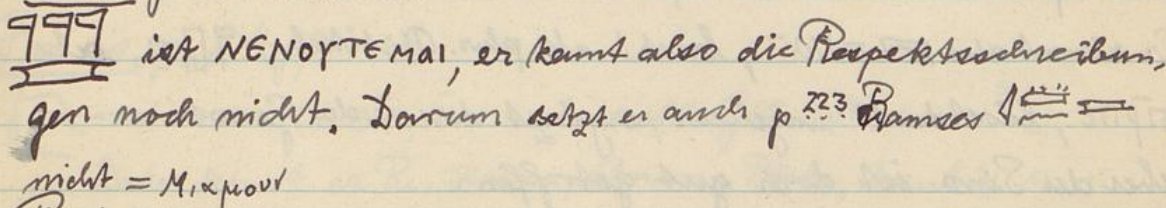 𓊹𓊹𓊹𓈘 ist NENOYTE MAI, er kennt also die Respektsschreibun,
gen noch nicht. Darum setzt er auch p 223 Ramses 𓇋𓏠𓈖𓈘
nicht = Μιαμουν